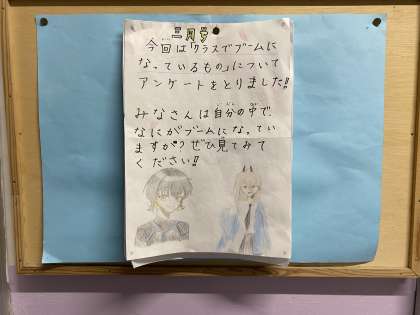 三月号
今回は「クラスでブームに
なっているもの」について
アンケートをとりました!!
みなさんは自分の中で、
なにがブームになってい
ますか?ぜひ見てみて
ください!!